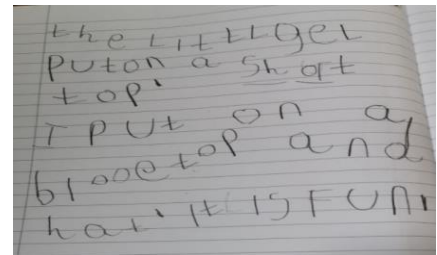 the Litttgel
Puton a Shoft
top.
I PUt on a
blooetop and
hat. It is FUN.